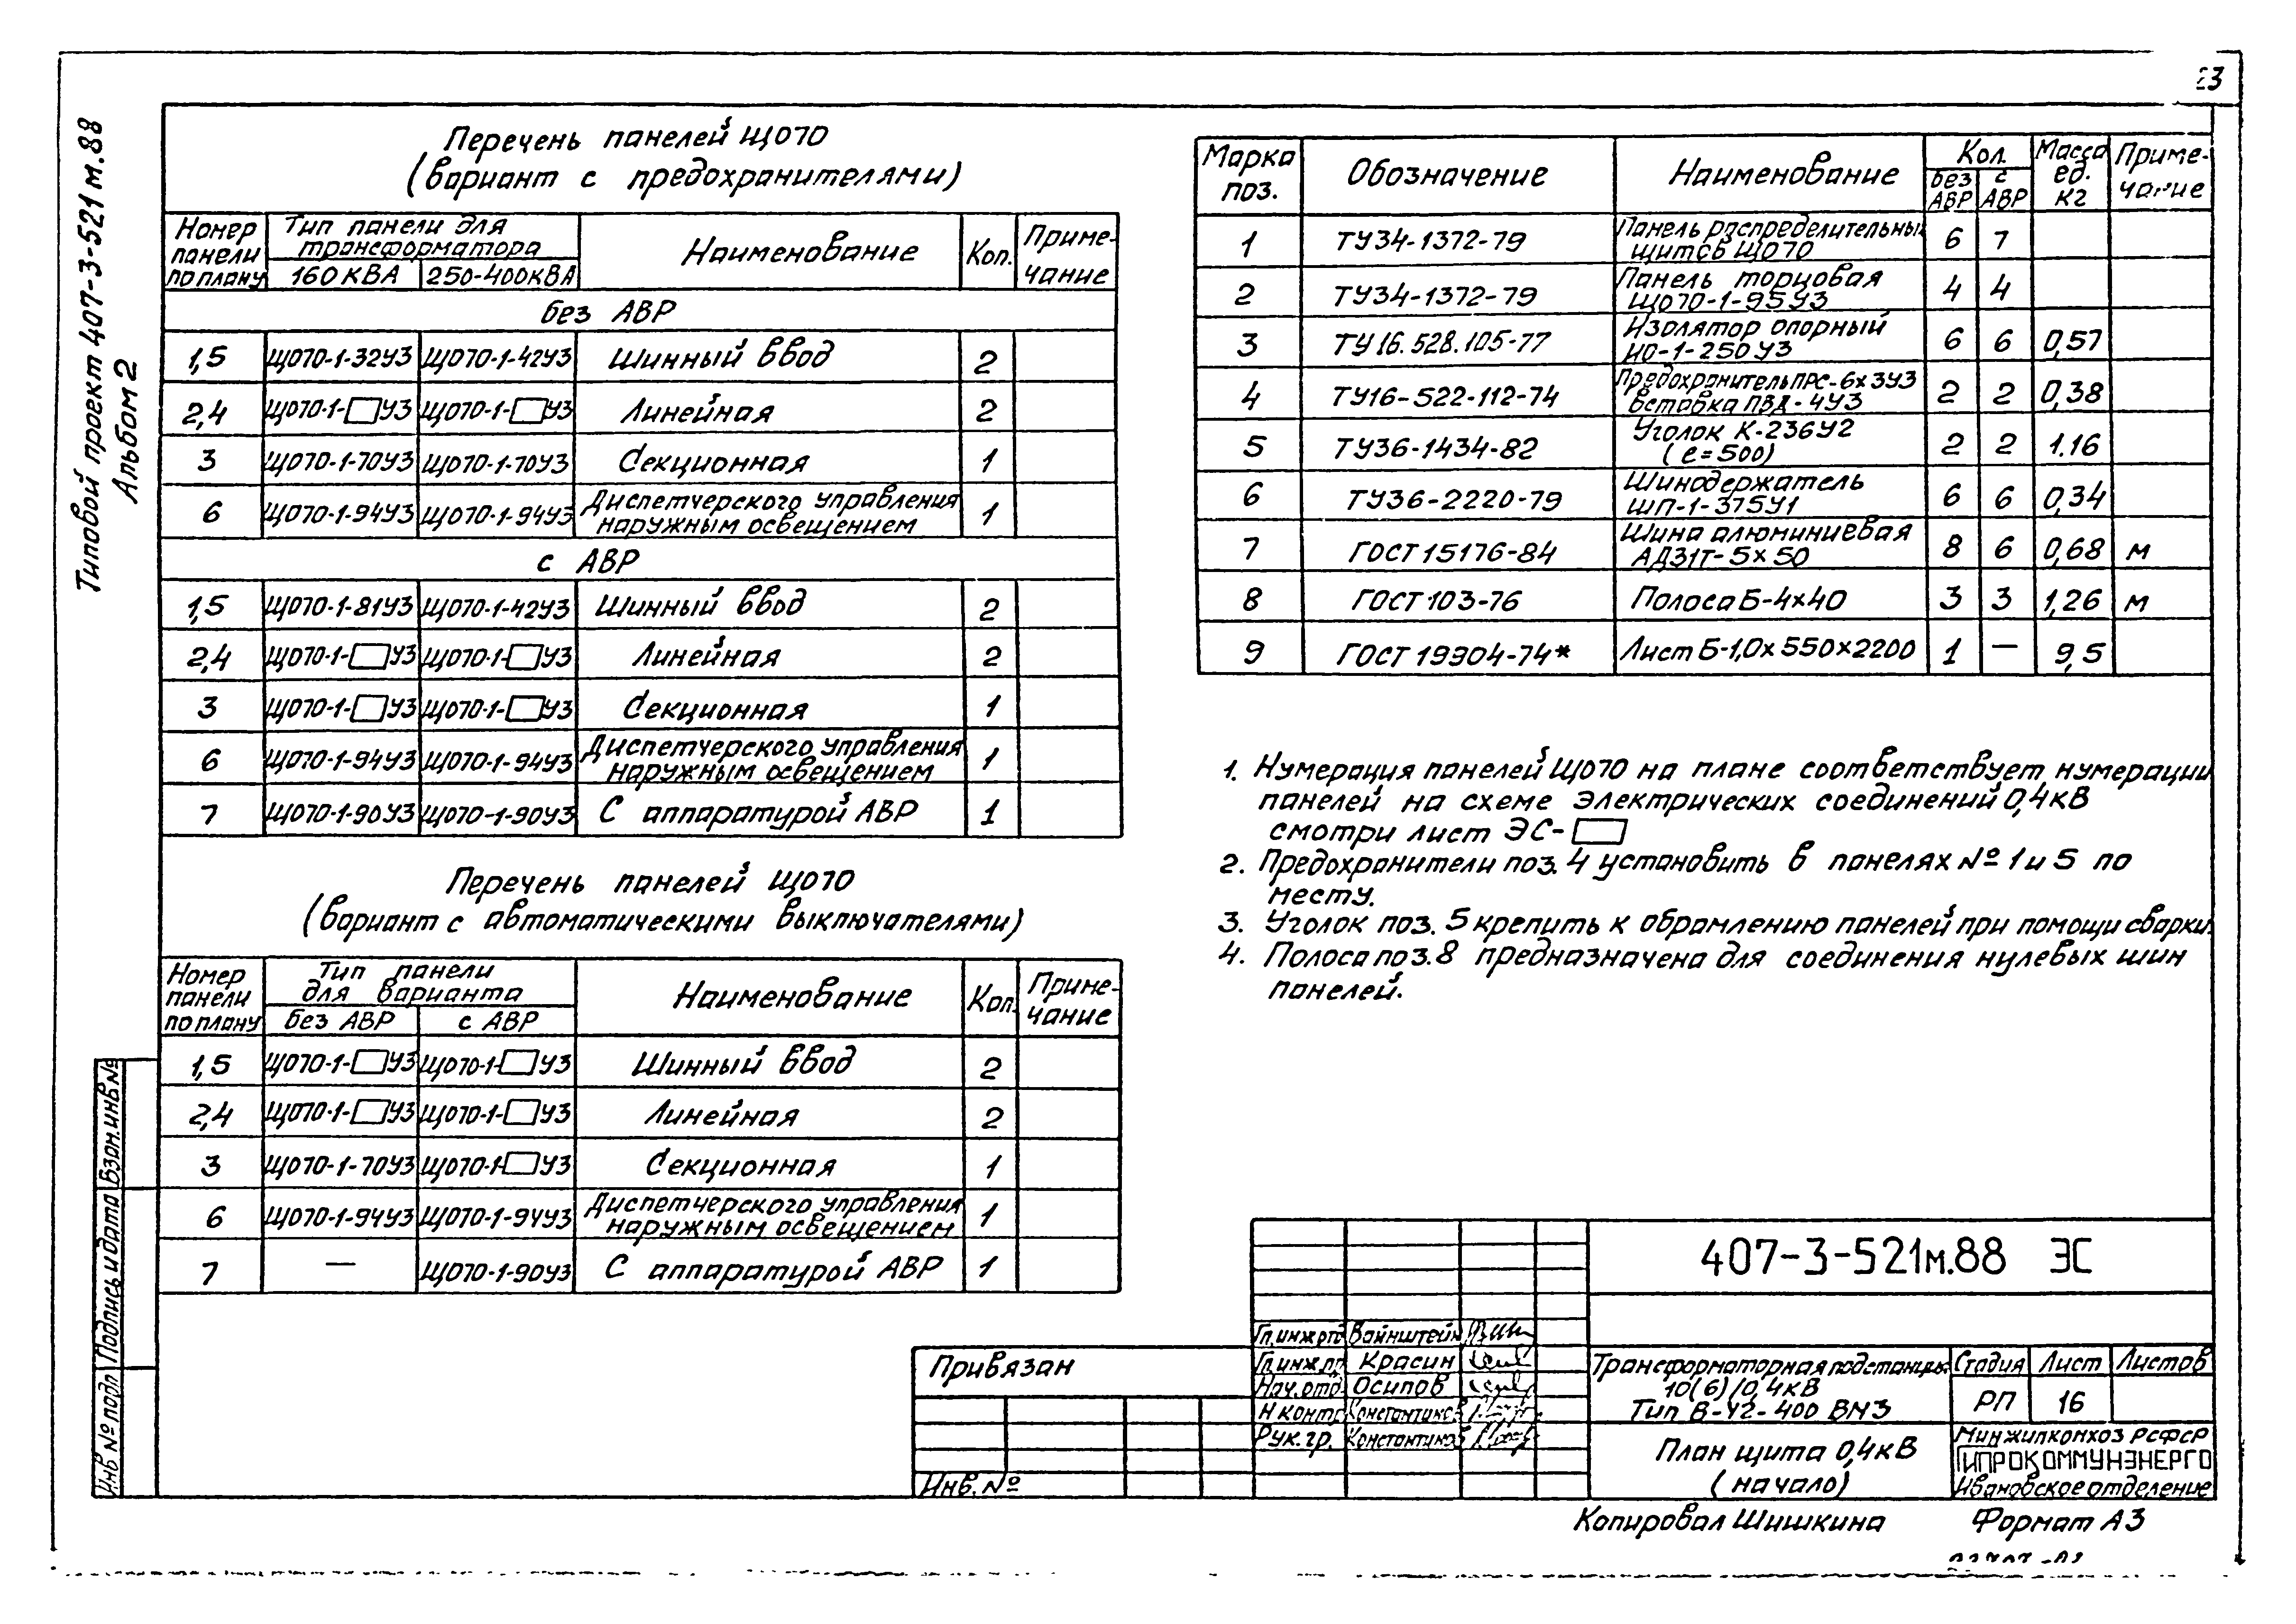 23
Типовой проект 407-3-521м.88
Альбом 2
Перечень панелей ЩО70
(вариант с предохранителями)
Номер панели по плану
Тип панели для трансформатора
160 кВА
250-400кВА
Наименование
Кол.
Примечание
без АВР
1,5 ЩО70-1-32У3 ЩО70-1-42У3 Шинный ввод 2
2,4 ЩО70-1-□У3 ЩО70-1-□У3 Линейная 2
3 ЩО70-1-70У3 ЩО70-1-70У3 Секционная 1
6 ЩО70-1-94У3 ЩО70-1-94У3 Диспетчерского управления наружным освещением 1
с АВР
1,5 ЩО70-1-81У3 ЩО70-1-42У3 Шинный ввод 2
2,4 ЩО70-1-□У3 ЩО70-1-□У3 Линейная 2
3 ЩО70-1-□У3 ЩО70-1-□У3 Секционная 1
6 ЩО70-1-94У3 ЩО70-1-94У3 Диспетчерского управления наружным освещением 1
7 ЩО70-1-90У3 ЩО70-1-90У3 С аппаратурой АВР 1
Перечень панелей ЩО70
(вариант с автоматическими выключателями)
Номер панели по плану
Тип панели для варианта
без АВР
с АВР
Наименование
Кол.
Примечание
1,5 ЩО70-1-□У3 ЩО70-1-□У3 Шинный ввод 2
2,4 ЩО70-1-□У3 ЩО70-1-□У3 Линейная 2
3 ЩО70-1-70У3 ЩО70-1-□У3 Секционная 1
6 ЩО70-1-94У3 ЩО70-1-94У3 Диспетчерского управления наружным освещением 1
7 — ЩО70-1-90У3 С аппаратурой АВР 1
Марка поз.
Обозначение
Наименование
Кол.
без АВР
с АВР
Масса ед. кг
Примечание
1 ТУ34-1372-79 Панель распределительных щитов ЩО70 6 7
2 ТУ34-1372-79 Панель торцовая ЩО70-1-95У3 4 4
3 ТУ16.528.105-77 Изолятор опорный ИО-1-250У3 6 6 0,57
4 ТУ16-522-112-74 Предохранитель ПРС-6х3У3 вставка ПВД-4У3 2 2 0,38
5 ТУ36-1434-82 Уголок К-236У2 (ℓ=500) 2 2 1.16
6 ТУ36-2220-79 Шинодержатель ШП-1-375У1 6 6 0,34
7 ГОСТ 15176-84 Шина алюминиевая АД31Т-5х50 8 6 0,68 м
8 ГОСТ 103-76 Полоса Б-4х40 3 3 1,26 м
9 ГОСТ 19904-74* Лист Б-1,0х550х2200 1 — 9,5
1. Нумерация панелей ЩО70 на плане соответствует нумерации
панелей на схеме электрических соединений 0,4кВ
смотри лист ЭС-□
2. Предохранители поз. 4 установить в панелях № 1 и 5 по
месту.
3. Уголок поз. 5 крепить к обрамлению панелей при помощи сварки.
4. Полоса поз. 8 предназначена для соединения нулевых шин
панелей.
Взам. инв. №
Подпись и дата
Инв № подл
Привязан
Инв. №
Вайнштейн
Гл.инж.пр Красин
Нач.отд. Осипов
Н контр Константинов
Рук.гр. Константинов
407-3-521м.88 ЭС
Трансформаторная подстанция
10(6)/0,4кВ
Тип В-42-400 ВМ3
Стадия Лист Листов
РП 16
План щита 0,4кВ
(начало)
Минжилкомхоз РСФСР
ГИПРОКОММУНЭНЕРГО
Ивановское отделение
Копировал Шишкина
Формат А3